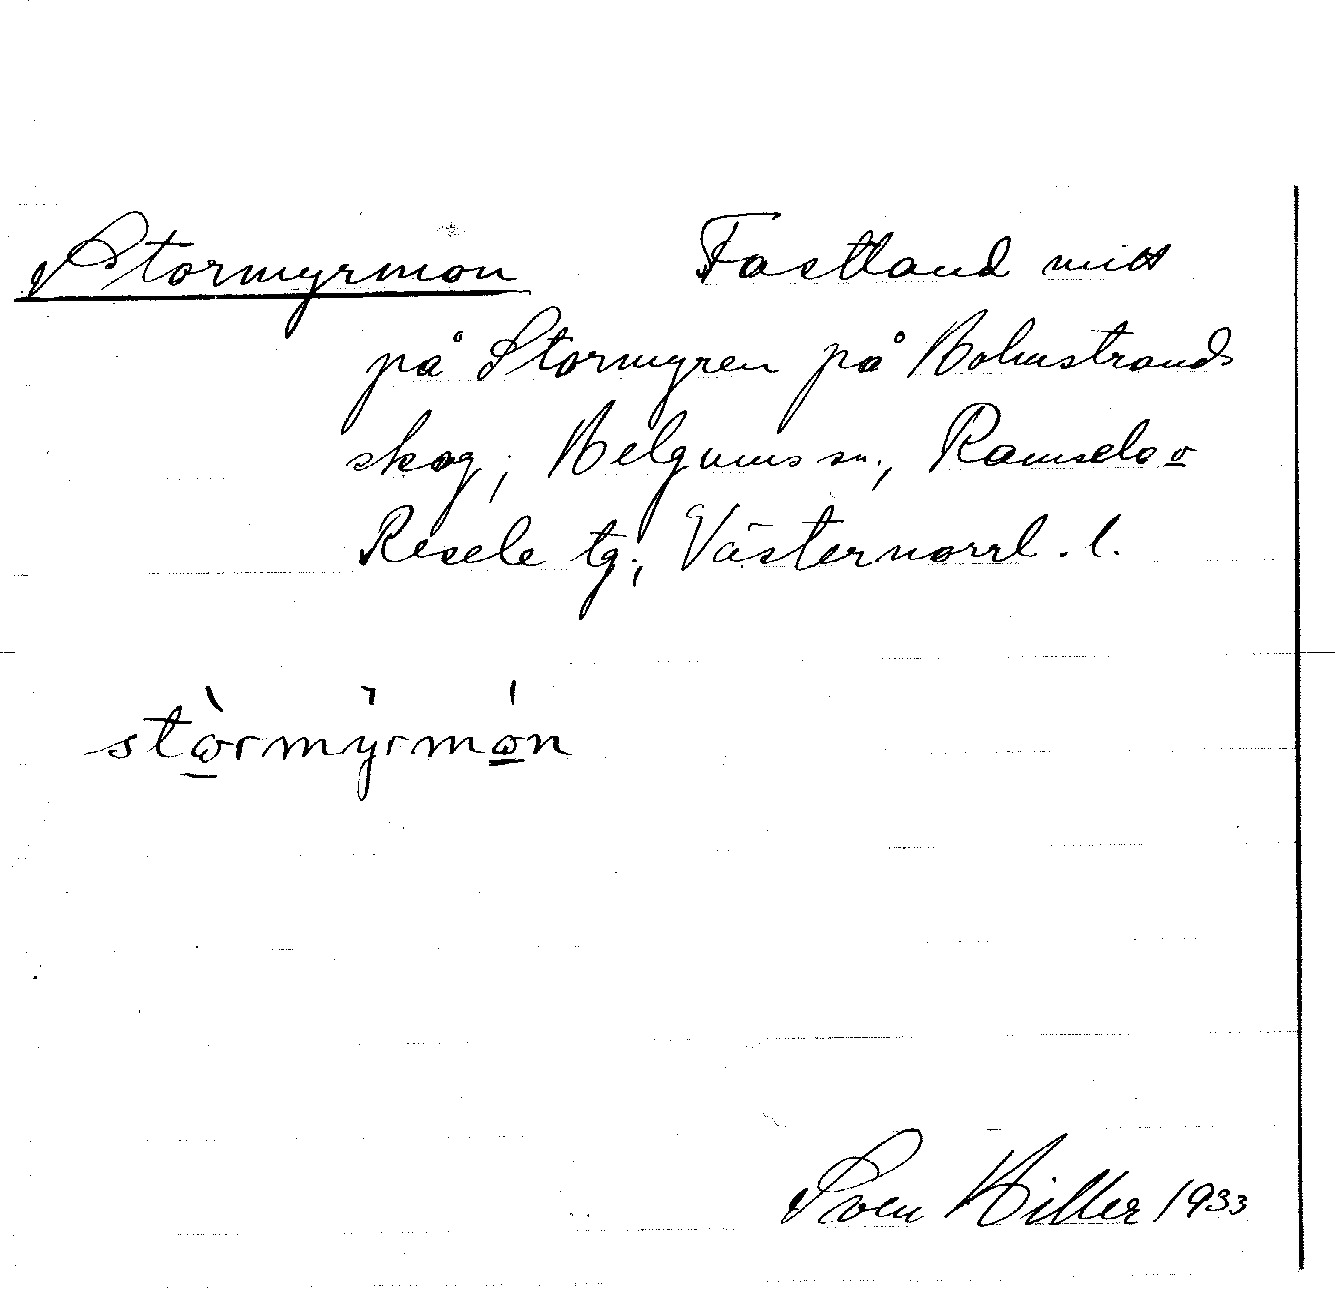 Stormyrmon Fastland mitt
på Stormyren på Bölenstrands
skog, Helgums sn., Ramsele o
Resele tg., Västernorrl. l.
stòrmy̌rmón
Sven Hiller 1933